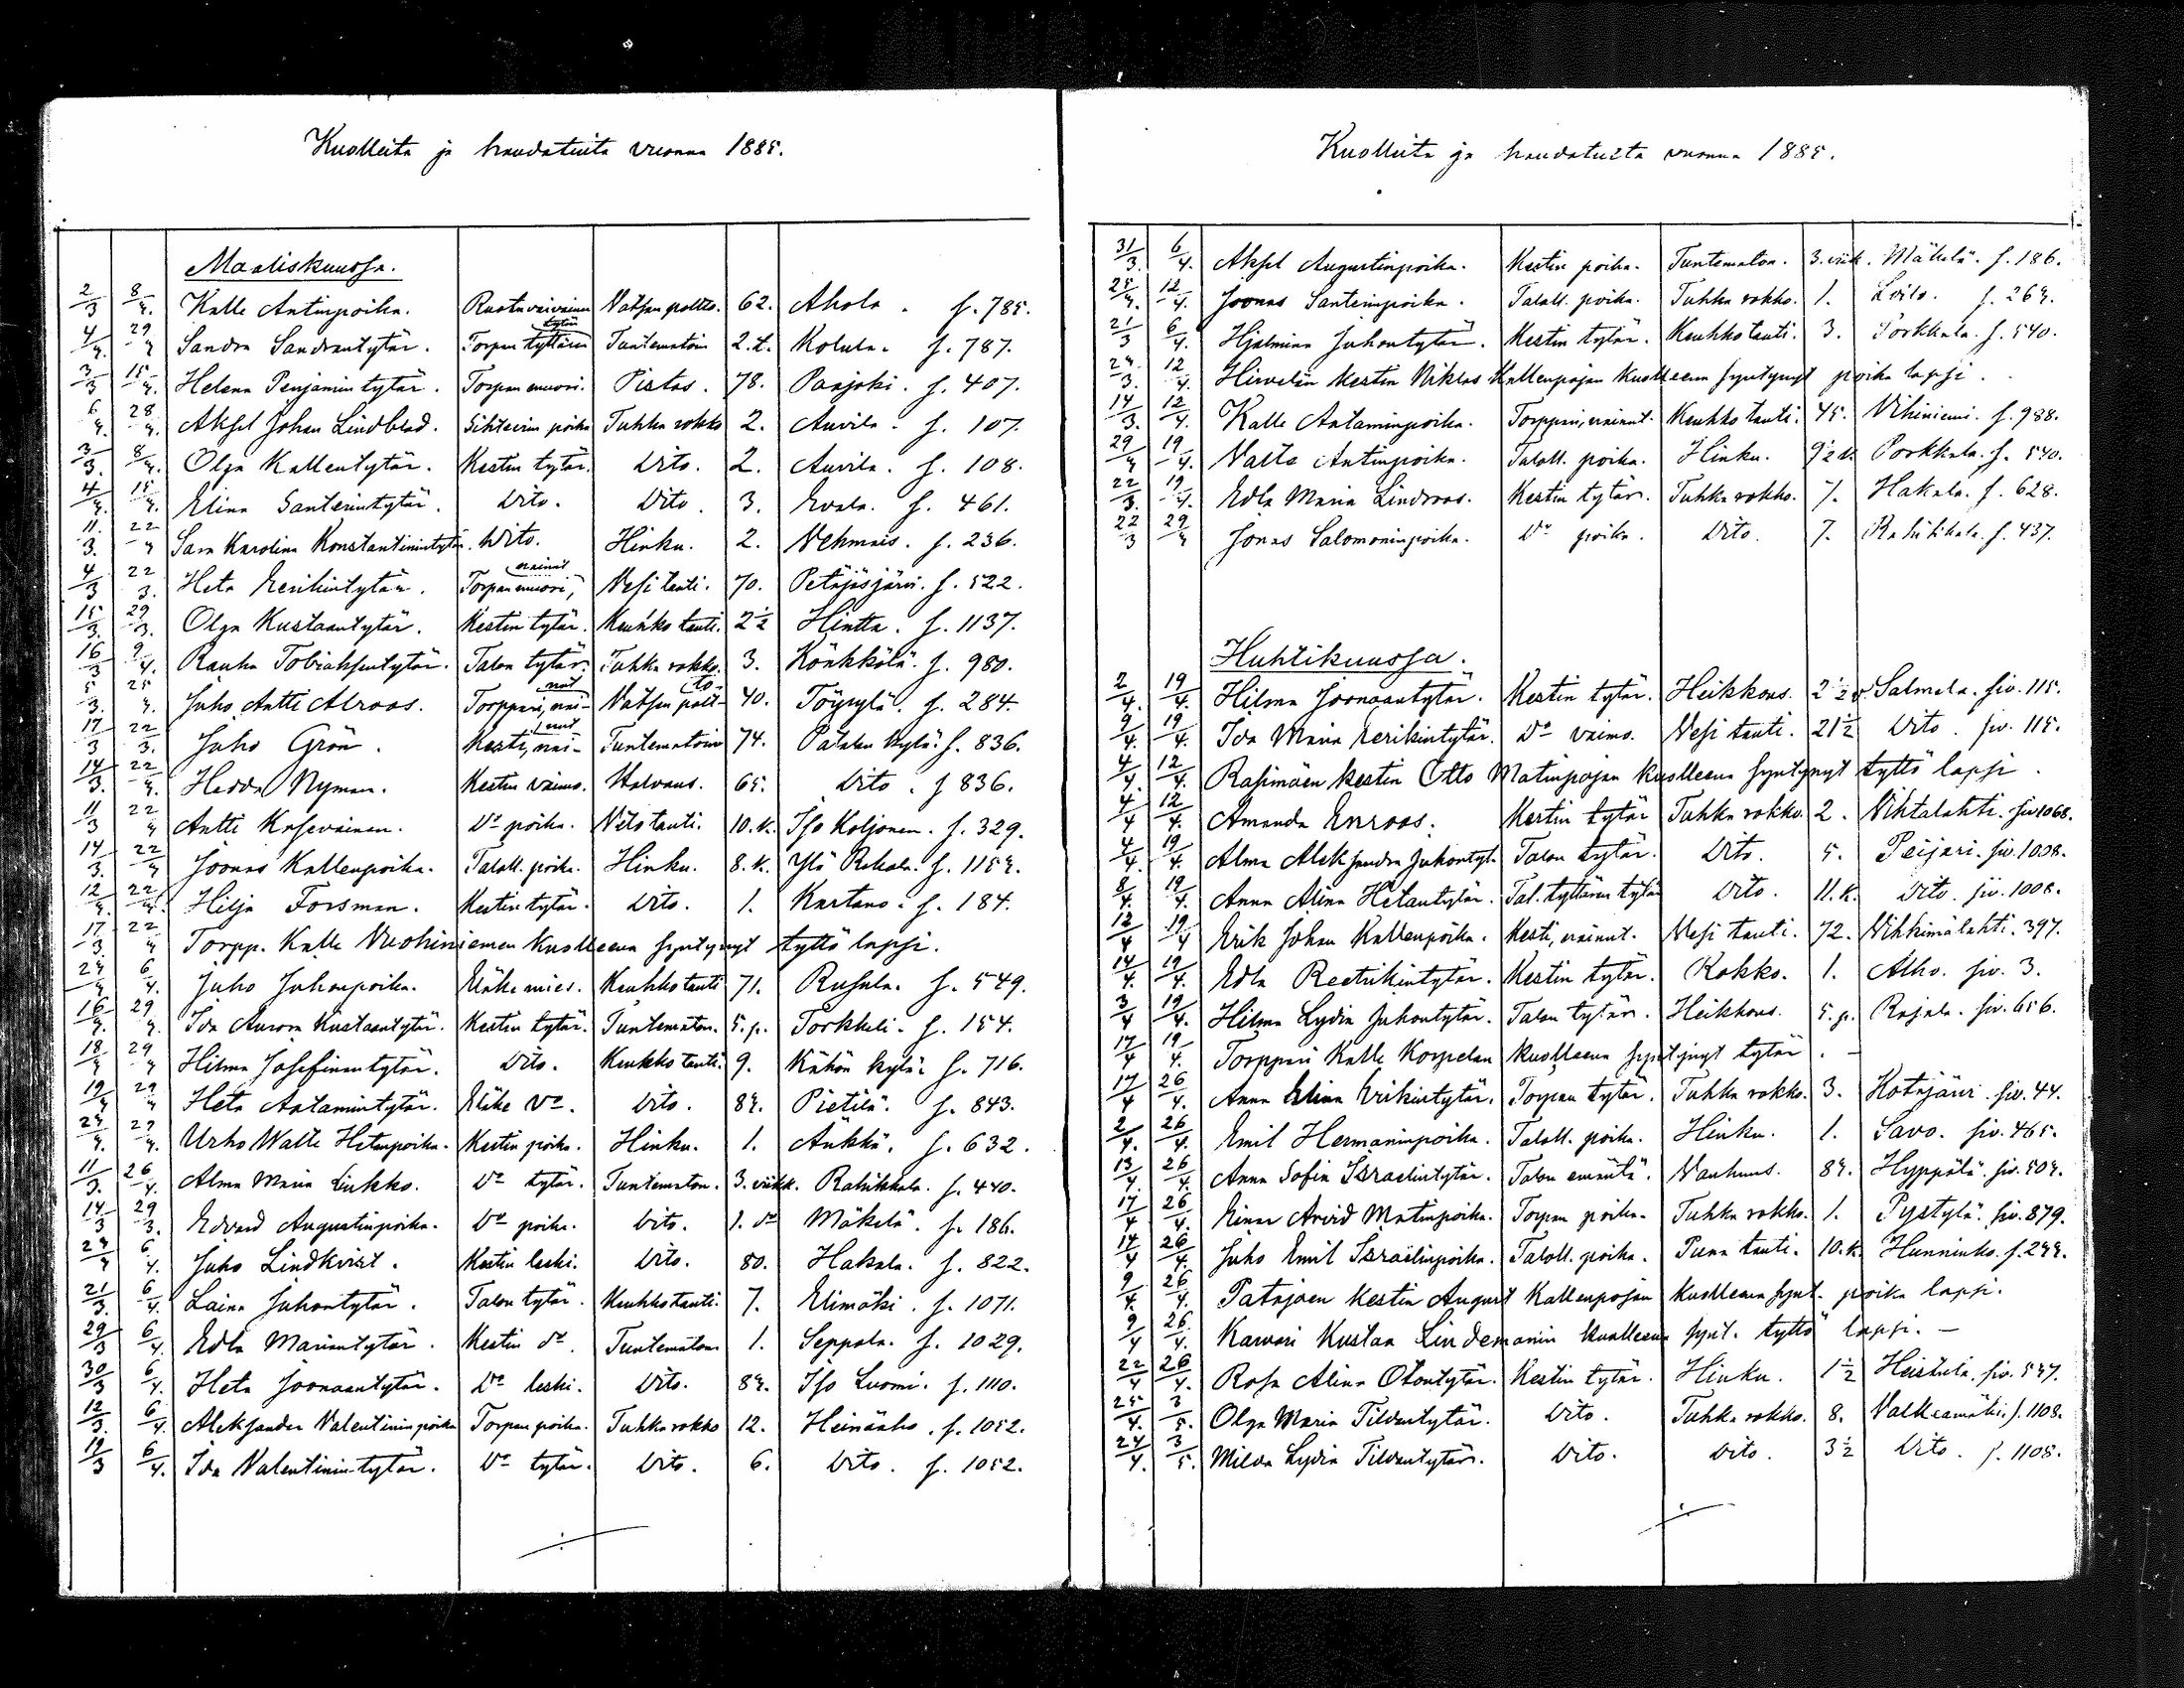 Kuolleita ja haudatuita vuonna 1885.
Maaliskuussa.
2/3 8/3. Kalle Antinpoika. Ruotuvaivainen Vatsan poltto. 62. Ahola. s. 785.
4/3. 29/3 Sandra Sandrantytär. Torpan tyttären tytär Tuntematoin 2.t. Kolula. s. 787.
3/3 15/3. Helena Penjamintytär. Torpan muori. Pistos. 78. Paajoki. s. 407.
6/3. 28/3. Aksel Johan Lindblad. poika Tuhka rokko 2. Auvila. s. 107.
3/3. 8/3. Olga Kallentytär. Kestin tytär. Dito. 2. Auvila. s. 108.
4/3. 15/3. Elina Santerintytär. Dito. Dito. 3. Evala. s. 461.
11/3. 22/3 Sara Karolina Konstantinintytär. Dito. Hinku. 2. Vehmais. s. 236.
4/3 22/3. Heta Eerikintytär. Torpan muori, nainut Vesi tauti. 70. Petäjäsjärvi. s. 522.
15/3. 29/3. Olga Kustaantytär. Kestin tytär. Keuhko tauti. 2½ Hintta. s. 1137.
16/3 9/4. Rauha Tobiaksentytär. Talon tytär. Tuhka rokko. 3. Könkkölä. s. 980.
5/3. 25/3. Juho Antti Alroos. Torppari, nainut Vatsan poltto 40. Töyrylä. s. 284.
17/3 22/3. Juho Grön. Kesti, nainut Tuntematoin 74. Pätälän kylä. s. 836.
14/3. 22/3. Hedda Nyman. Kestin vaimo. Halvaus. 65. Dito. s 836.
11/3 22/3 Antti Kaseväinen. Do poika. Vilutauti. 10.k. Iso Koljonen. s. 329.
14/3. 22/3 Joonas Kallenpoika. Taloll. poika. Hinku. 8.k. Ylä Rekola. s. 1153.
12/3. 22/3. Hilja Forsman. Kestin tytär. Dito. 1. Kartano. s. 184.
17/3. 22/3 Torpp. Kalle Vuohiniemen kuolleena syntynyt tyttö lapsi.
23/3 6/4. Juho Juhonpoika. Eläke mies. Keuhko tauti 71. Rusala. s. 549.
16/3. 29/3. Ida Aurora Kustaantytär. Kestin tytär. Tuntematon. 5.p. Torkkeli. s. 154.
18/3 29/3 Hilma Josefinantytär. Dito. Keuhko tauti. 9. Kähön kylä. s. 716.
19/3 29/3 Heta Aatamintytär. Eläke Vo. Dito. 83. Pietilä. s. 843.
23/3. 29/3. Urho Walte Hetanpoika. Kestin poika. Hinku. 1. Äükkä. s. 632.
11/3. 26/4. Alma Maria Liukko. Do tytär. Tuntematon. 3. viikk. Rahikkala. s. 440.
14/3 29/3. Edvard Augustinpoika. Do poika. Dito. 1. do Mäkelä. s. 186.
23/3 6/4. Juho Lindkvist. Kestin leski. Dito. 80. Hakala. s. 822.
21/3. 6/4. Laina Juhontytär. Talon tytär. Keuhko tauti. 7. Elimäki. s. 1071.
29/3 6/4. Edla Mariantytär. Kestin do. Tuntematon 1. Seppälä. s. 1029.
30/3 6/4. Heta Joonaantytär. Do leski. Dito. 83. Iso Luomi. s. 1110.
12/3. 6/4. Aleksander Valentininpoika Torpan poika. Tuhka rokko 12. Heinäaho. s. 1052.
19/3 6/4. Ida Valentinintytär. Do tytär. Dito. 6. Dito. s. 1052.
Kuolleita ja haudatuita vuonna 1885.
31/3. 6/4. Aksel Augustinpoika. Kestin poika. Tuntematon. 3. viik. Mäkelä. s. 186.
25/3. 12/4. Joonas Santerinpoika. Taloll. poika. Tuhka rokko. 1. s. 263.
21/3 6/4. Hjalmina Juhontytär. Kestin tytär. Keuhko tauti. 3. Porkkala. s. 540.
23/3. 12/4. Hirvelän kestin Niklas Kallenpojan kuolleena syntynyt poika lapsi.
14/3. 12/4. Kalle Aataminpoika. Torppari, nainut. Keuhko tauti. 45. Vihiniemi. s. 988.
29/3 19/4. Valte Antinpoika. Taloll. poika. Hinku. 9½ k. Porkkala. s. 540.
22/3. 19/4. Edla Maria Lindroos. Kestin tytär. Tuhka rokko. 7. Hakala. s. 628.
22/3 29/3 Jonas Salomoninpoika. Do poika. Dito. 7. Rahikkala. s. 437.
Huhtikuussa.
2/4. 19/4. Hilma Joonaantytär. Kestin tytär. Heikkous. 2½ Salmela. siv. 115.
9/4. 19/4. Ida Maria Eerikintytär. Do vaimo. Vesi tauti. 21½ Dito. siv. 115.
4/4. 12/4. Rasimäen kestin Otto Matinpojan kuolleena syntynyt tyttö lapsi.
4/4 12/4. Amanda Enroos. Kestin tytär Tuhka rokko. 2. Vihtalahti. siv 1068.
4/4. 19/4. Alma Aleksandra Juhontyt. Talon tytär. Dito. 5. Peijari. siv. 1008.
8/4. 19/4. Anna Alina Hetantytär. Tal. tyttären tytär Dito. 11.k. Dito. siv. 1008.
12/4 19/4 Erik Johan Kallenpoika. Kesti, nainut. Vesi tauti. 72. Vihkimälahti. 397.
14/4. 19/4. Edla Reetrikintytär. Kestin tytär. Rokko. 1. Alho. siv. 3.
3/4 19/4. Hilma Lydia Juhontytär. Talon tytär. Heikkous. 5.p. Rajala. siv. 656.
17/4 19/4. Torppari Kalle Korpelan kuolleena syntynyt tytär. —
17/4 26/4. Anna Elina Erikintytär. Torpan tytär. Tuhka rokko. 3. Kotajärvi. siv. 44.
2/4. 26/4. Emil Hermaninpoika. Taloll. poika. Hinku. 1. Savo. siv. 465.
13/4. 26/4. Anna Sofia Israelintytär. Talon emäntä. Vanhuus. 83. Hyppölä. siv. 503.
17/4 26/4. Einar Arvid Matinpoika. Torpan poika. Tuhka rokko. 1. Pystylä. siv. 879.
14/4 26/4 Juho Emil Israelinpoika. Taloll. poika. Puna tauti. 10.k. Hunninko. s. 233.
9/4. 26/4. Patajoen kestin August Kallenpojan kuolleena synt. poika lapsi.
9/4 26/4. Karvari Kustaa Lindemanin kuolleena synt. tyttö lapsi. —
22/4 26/4. Rosa Alina Otontytär. Kestin tytär. Hinku. 1½ Heistula. siv. 537.
25/4. 3/5. Olga Maria Tildantytär. Dito. Tuhka rokko. 8. Valkeamäki. s. 1108.
24/4. 3/5. Milda Lydia Tildantytär. Dito. Dito. 3½ Dito. s. 1108.